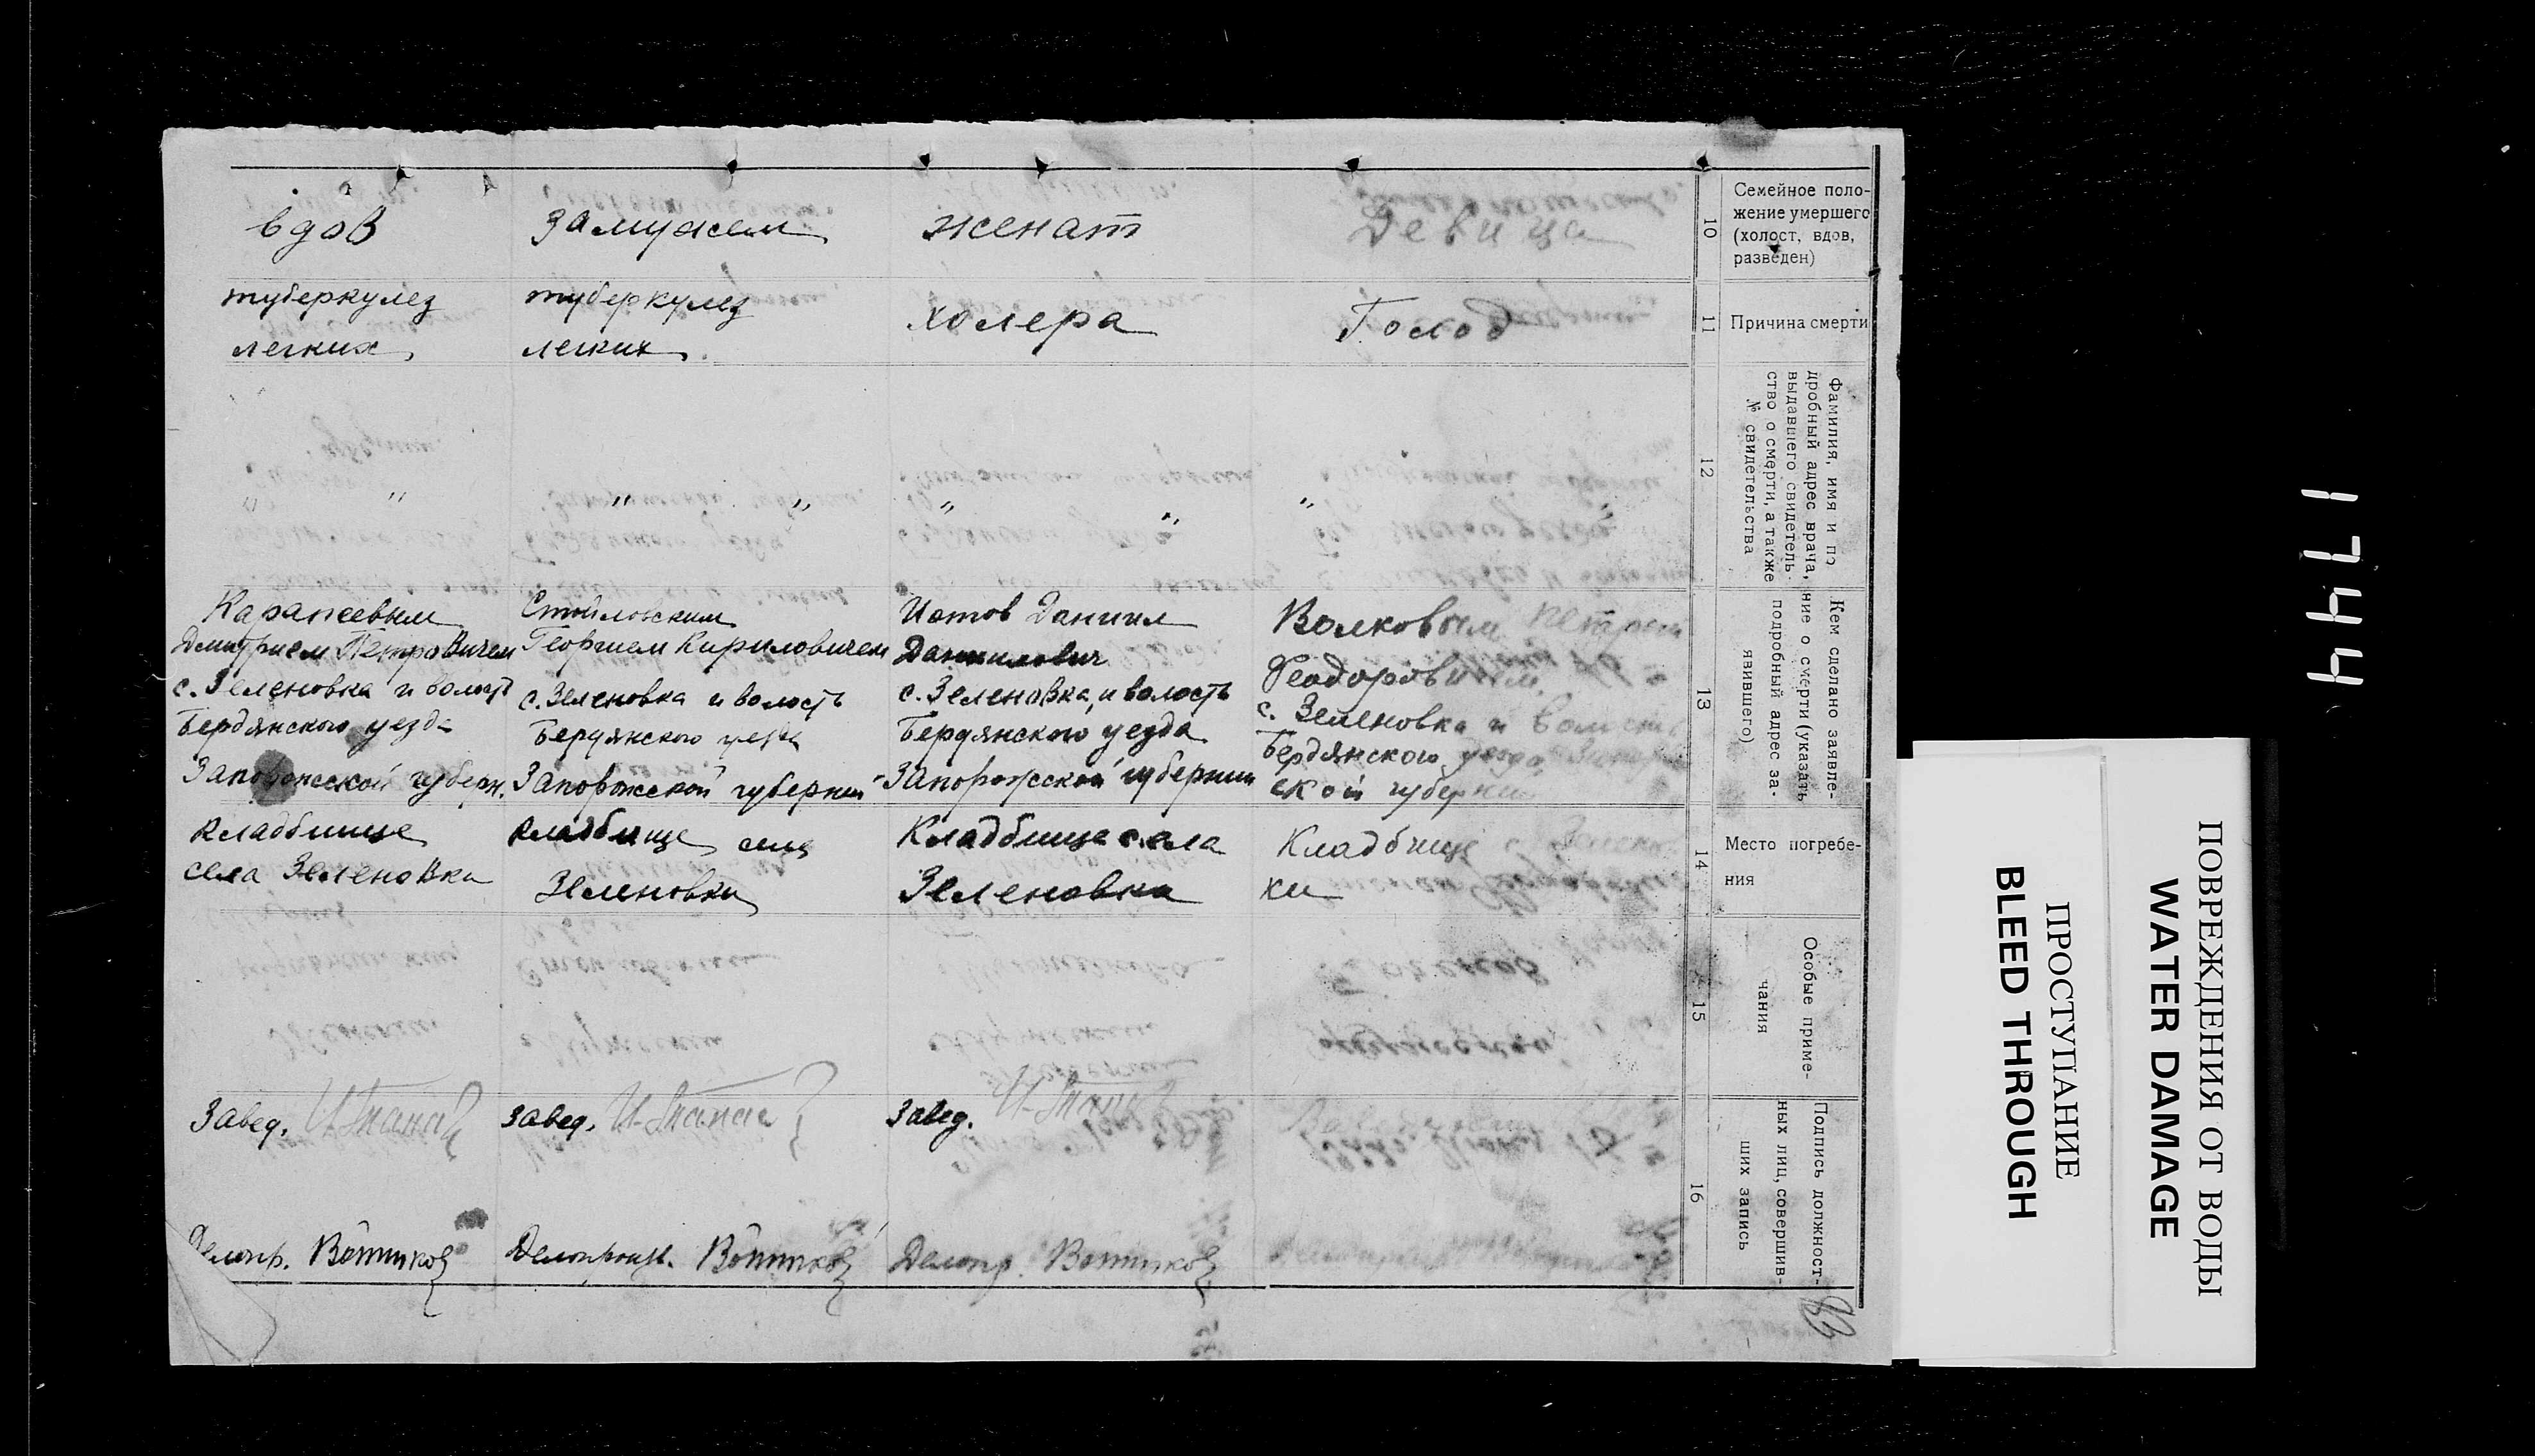 Семейное поло-
жение умершего
(холост, вдов,
разведен)
10
вдов
замужем
женат
Девица
Причина смерти
11
туберкулез
легких
туберкулез
легких
холера
Голод
Фамилия, имя и по
дробный адрес врача,
выдавшего свидетель-
ство о смерти, а также
№ свидетельства
12
" "
" "
" "
" "
Кем сделано заявле-
ние о смерти (указать
подробный адрес за-
явившего)
13
Карапеевым
Дмитрием Петровичем
с. Зеленовка и волость
Бердянского уезда
Запорожской губерн.
Стойловским
Георгием Кириловичем
с. Зеленовка и волость
Бердянского уезда
Запорожской губернии
Иотов Даниил
Данилович
с. Зеленовка и волость
Бердянского уезда
Запорожской губернии
Волковым Петром
Феодоровичем
с. Зеленовка и волость
Бердянского уезда Запорож
ской губернии
Место погребе-
ния
14
кладбище
села Зеленовки
кладбище села
Зеленовки
Кладбище села
Зеленовка
Кладбище с. Зеленов
ки
Особые приме-
чания
15
Подпись должност-
ных лиц, совершив-
ших запись
16
Завед.
Делопр.
завед.
Делопроизв.
Завед.
Делопр.
83
1744
ПОВРЕЖДЕНИЯ ОТ ВОДЫ
WATER DAMAGE
ПРОСТУПАНИЕ
BLEED THROUGH